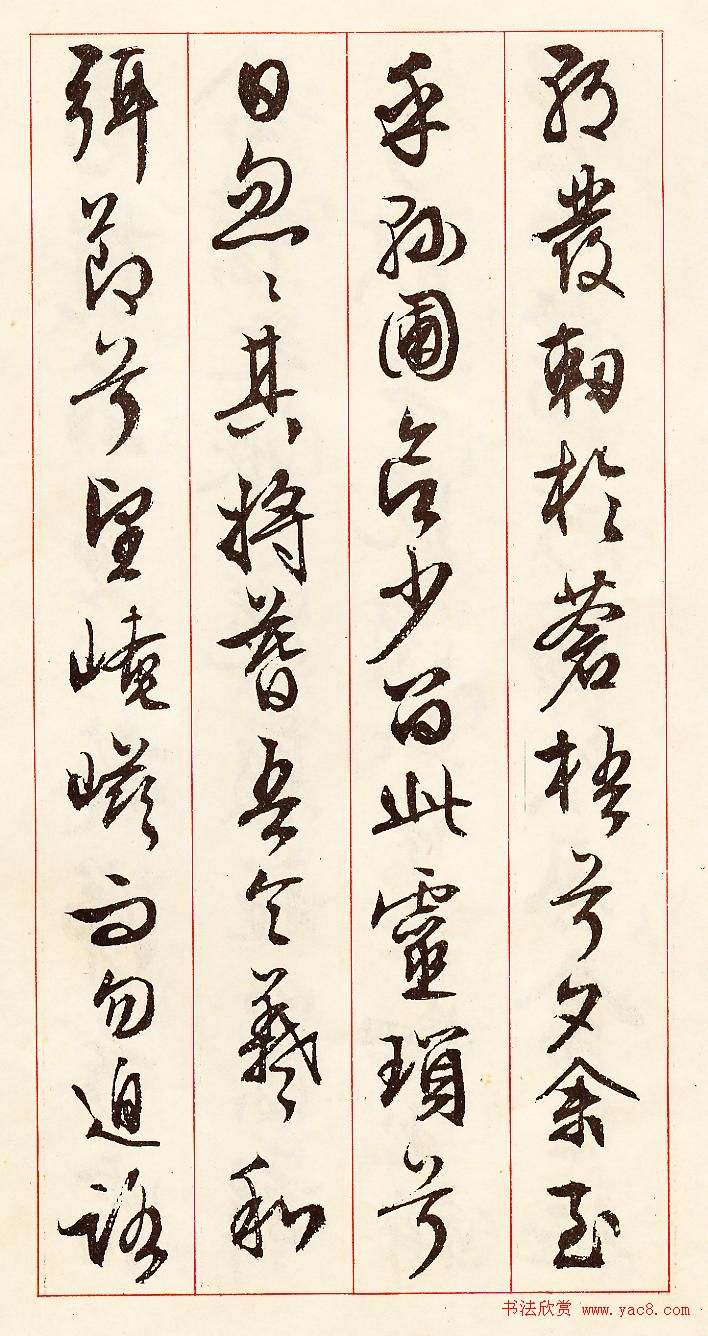 朝發軔於蒼梧兮夕余至
乎縣圃欲少留此靈瑣兮
日忽〻其將暮吾令羲和
弭節兮望崦嵫而勿迫路
书法欣赏 www.yac8.com